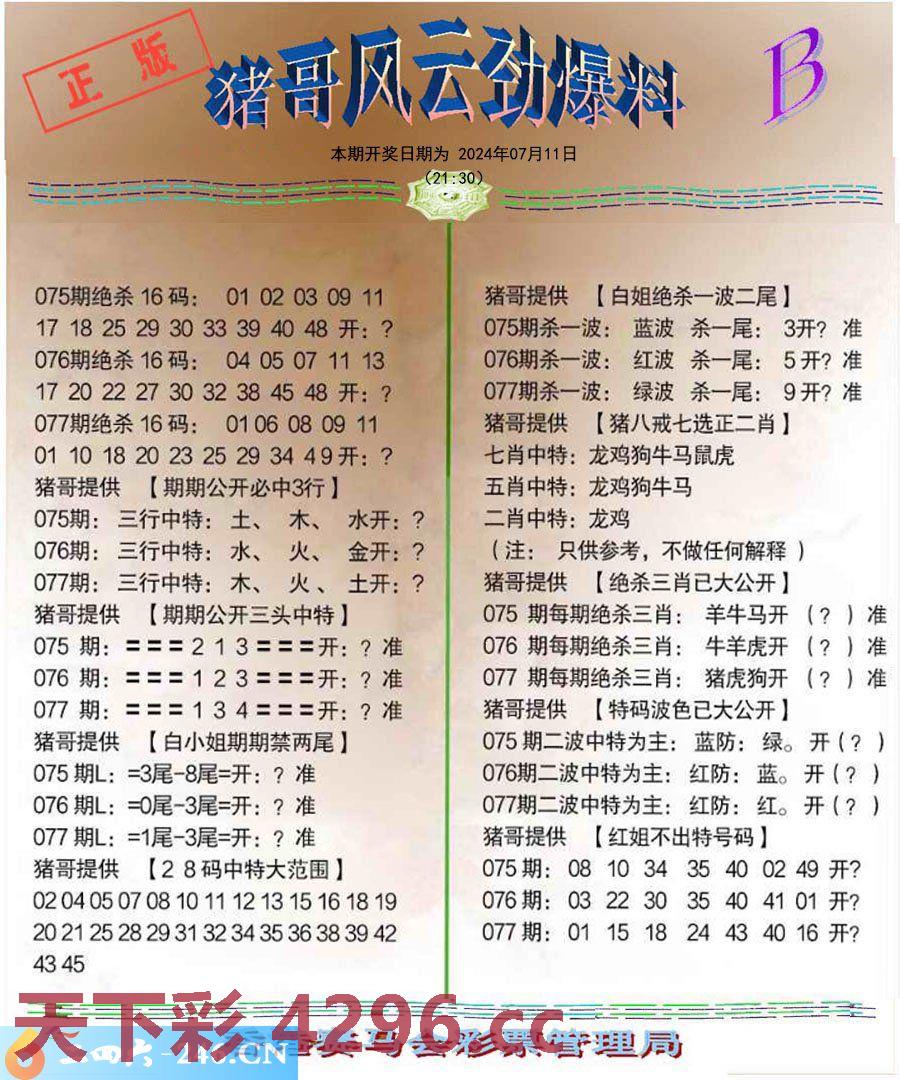 正版
猪哥风云劲爆料
B
本期开奖日期为 2024年07月11日
(21:30)
075期绝杀 16 码： 01 02 03 09 11
17 18 25 29 30 33 39 40 48 开：?
076期绝杀 16 码： 04 05 07 11 13
17 20 22 27 30 32 38 45 48 开：?
077期绝杀 16 码： 01 06 08 09 11
01 10 18 20 23 25 29 34 4 9 开：?
猪哥提供 【期期公开必中3行】
075期： 三行中特：土、 木、 水开：?
076期： 三行中特：水、 火、 金开：?
077期： 三行中特：木、 火、 土开：?
猪哥提供 【期期公开三头中特】
075 期：＝＝＝2 1 3＝＝＝开：? 准
076 期：＝＝＝1 2 3＝＝＝开：? 准
077 期：＝＝＝1 3 4＝＝＝开：? 准
猪哥提供 【白小姐期期禁两尾】
075 期L：=3尾-8尾=开：? 准
076 期L：=0尾-3尾=开：? 准
077 期L：=1尾-3尾=开：? 准
猪哥提供 【2 8 码中特大范围】
02 04 05 07 08 10 11 12 13 15 16 18 19
20 21 25 28 29 31 32 34 35 36 38 39 42
43 45
猪哥提供 【白姐绝杀一波二尾】
075期杀一波： 蓝波 杀一尾： 3开? 准
076期杀一波： 红波 杀一尾： 5 开? 准
077期杀一波： 绿波 杀一尾： 9 开? 准
猪哥提供 【猪八戒七选正二肖】
七肖中特：龙鸡狗牛马鼠虎
五肖中特：龙鸡狗牛马
二肖中特：龙鸡
（注： 只供参考，不做任何解释 ）
猪哥提供 【绝杀三肖已大公开】
075 期每期绝杀三肖： 羊牛马开 （? ）准
076 期每期绝杀三肖： 牛羊虎开 （? ）准
077 期每期绝杀三肖： 猪虎狗开 （? ）准
猪哥提供 【特码波色已大公开】
075 期二波中特为主：蓝防：绿。 开(? )
076期二波中特为主：红防：蓝。 开(? )
077期二波中特为主：红防：红。 开(? )
猪哥提供 【红姐不出特号码】
075 期： 08 10 34 35 40 02 49 开?
076 期： 03 22 30 35 40 41 01 开?
077 期： 01 15 18 24 43 40 16 开?
天下彩 4296.cc
二四六-246.CN
马会彩票管理局